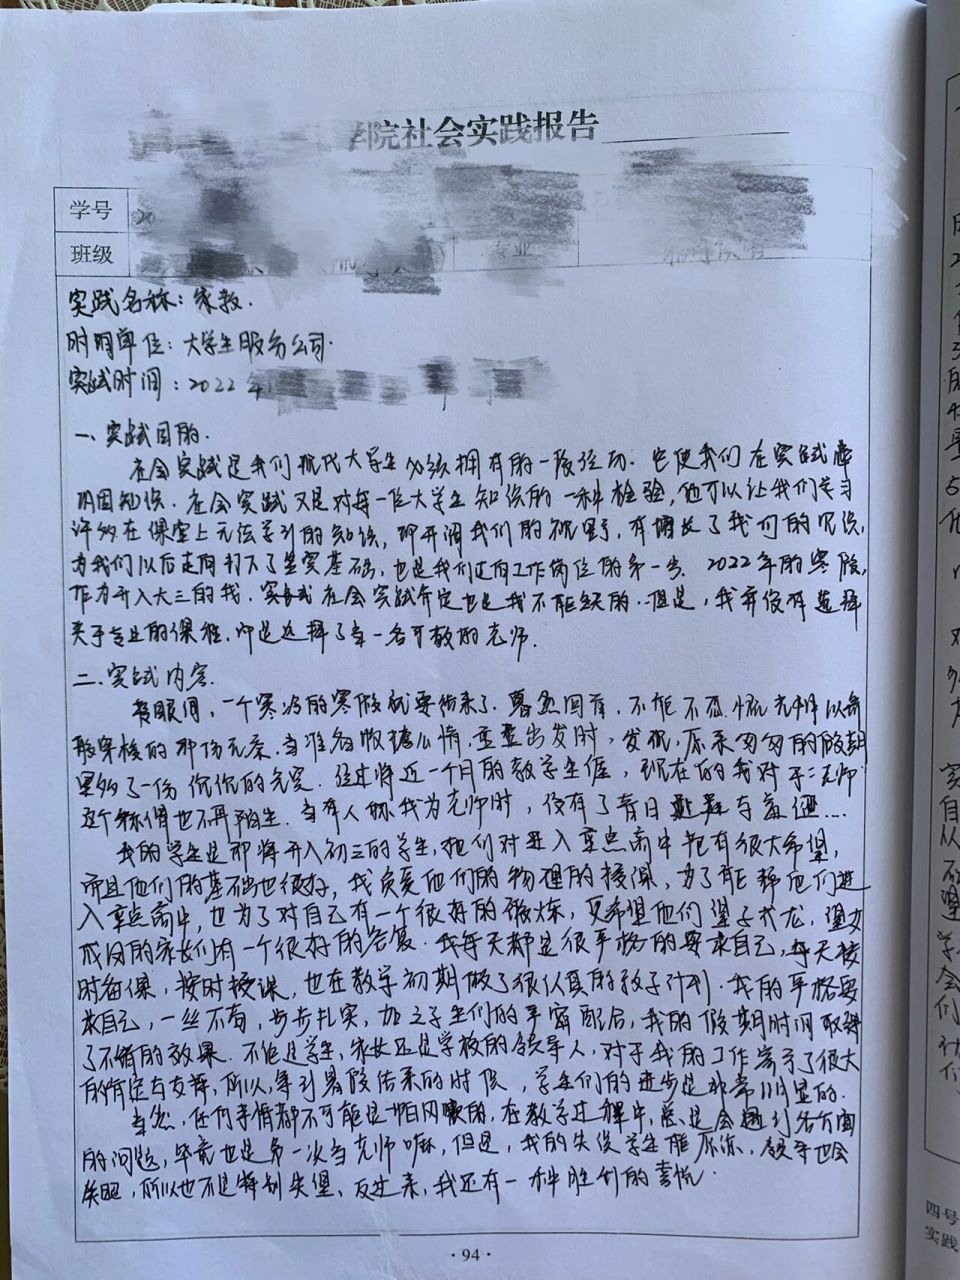 学院社会实践报告
学号
班级 专业
实践名称：家教.
时明单位：大学生服务公司.
实践时间：2022年
一、实践目的.
社会实践是我们现代大学生必须拥有的一段经历. 它使我们在实践中
巩固知识. 社会实践又是对每一位大学生知识的一种检验, 他可以让我们学习
许多在课堂上无法学到的知识, 即开阔我们的视野, 有增长了我们的见识,
为我们以后走向打下了坚实基础, 也是我们迈向工作岗位的第一步. 2022年的寒假,
作为升入大三的我. 实践社会实践肯定也是我不能缺的. 但是, 我并没有选择
关于专业的课程, 而是选择了当一名可敬的老师.
二、实践内容.
转眼间, 一个寒冷的寒假就要结束了. 蓦然回首, 不能不感慨光阴以
般穿梭的那份无奈. 当准备收拾心情, 重整出发时, 发现, 原来匆匆的假期
里多了一份 的充实. 经过将近一个月的教学生涯, 现在的我对于“老师”
这个称谓也不再陌生. 当有人称我为老师时, 没有了昔日 与羞涩...
我的学生是即将升入初三的学生, 他们对进入重点高中抱有很大希望,
而且他们的基础也很好, 我负责他们的物理的授课, 为了能帮他们进
入重点高中, 也为了对自己有一个很好的锻炼, 更希望他们望子成龙, 望女
成凤的家长们有一个很好的答复. 我每天都是很严格的要求自己, 每天按
时备课, 按时授课, 也在教学初期做了很认真的教学计划. 我的严格要
求自己, 一丝不苟, 步步扎实, 加之学生们的 配合, 我的假期时间取得
了不错的效果. 不论是学生, 家长还是学校的领导人, 对于我的工作寄予了很大
的肯定与支持, 所以, 等到暑假结束的时候, 学生们的进步是非常明显的.
当然, 任何事情都不可能是一帆风顺的, 在教学过程中, 总是会遇到各方面
的问题, 毕竟也是第一次当老师嘛, 但是, 我的失误学生能原谅, 领导也会
关照, 所以也不是特别失望, 反过来, 我还有一种胜利的喜悦.
·94·
四号
实践